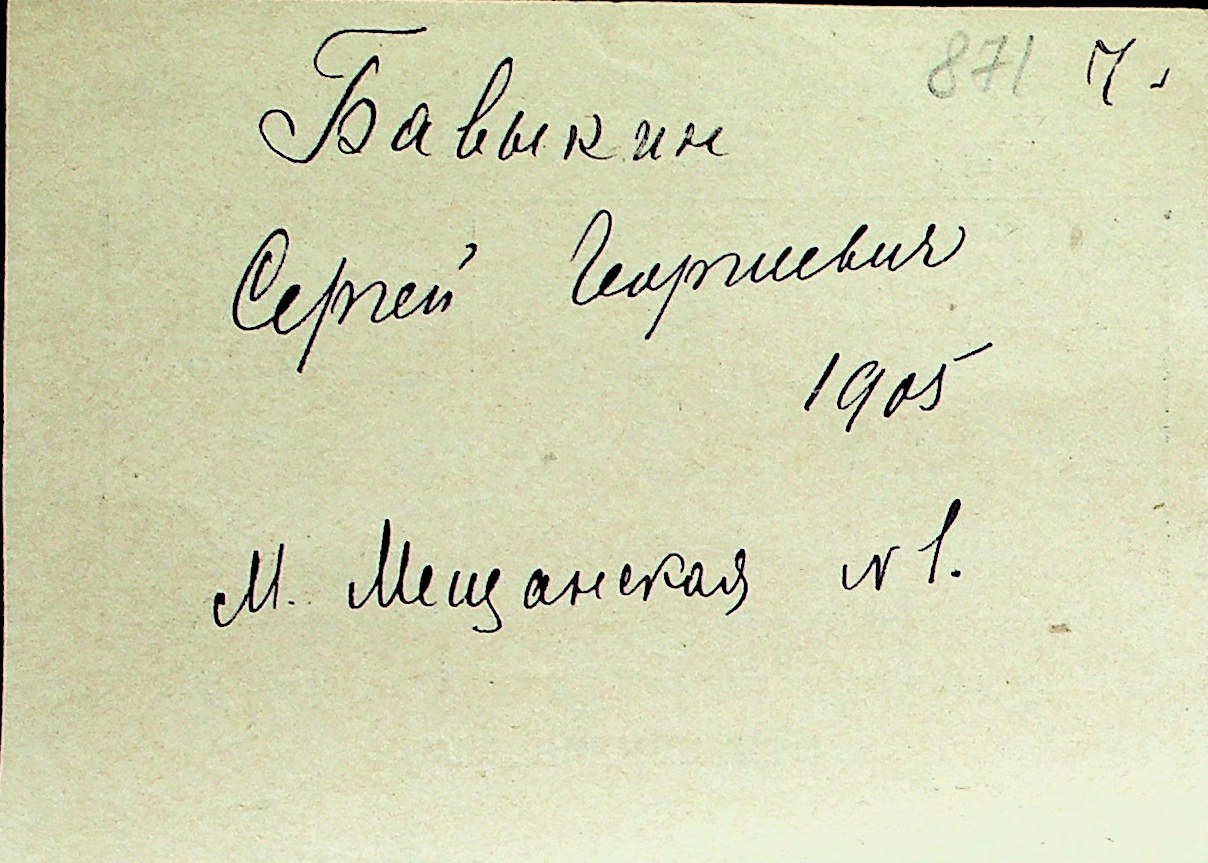 871 7.
Бавыкин
Сергей Георгиевич
1905
М. Мещанская № 1.